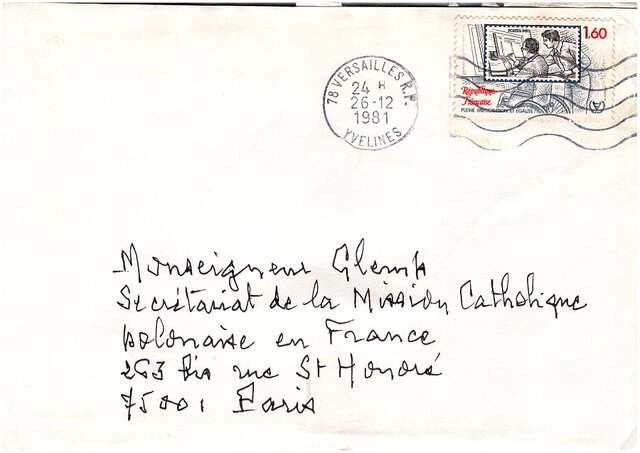 78 VERSAILLES R.P.
24 H
26-12
1981
YVELINES
POSTES 1981
1.60
République
Française
PLEINE PARTICIPATION ET EGALITE
Monseigneur Glemp
Secrétariat de la Mission Catholique
polonaise en France
263 bis rue St Honoré
75001 Paris